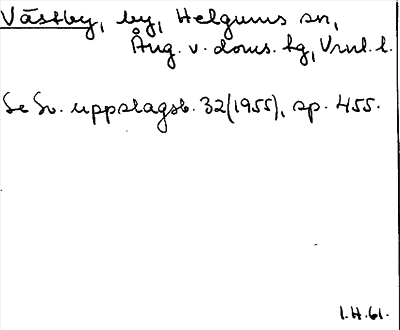 Västby, by, Helgums sn,
Ång. v. doms. hg, Vrnl. l.
Se Sv. uppslagsb. 32(1955), sp. 455.
1.H.61.